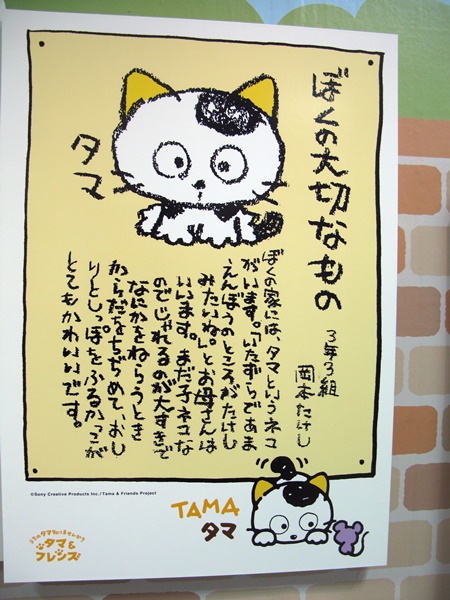 ぼくの大切なもの
3年3組
岡本たけし
タマ
ぼくの家には、タマというネコ
がいます。「いたずらであま
えんぼうのところがたけし
みたいね。」とお母さんは
いいます。まだ子ネコな
のでじゃれるのが大すきで
なにかをねらうとき
からだをちぢめて、おし
りとしっぽをふるかっこが
とてもかわいいです。
©Sony Creative Products Inc./Tama & Friends Project
TAMA
タマ
うちのタマ知りませんか?
タマ&
フレンズ